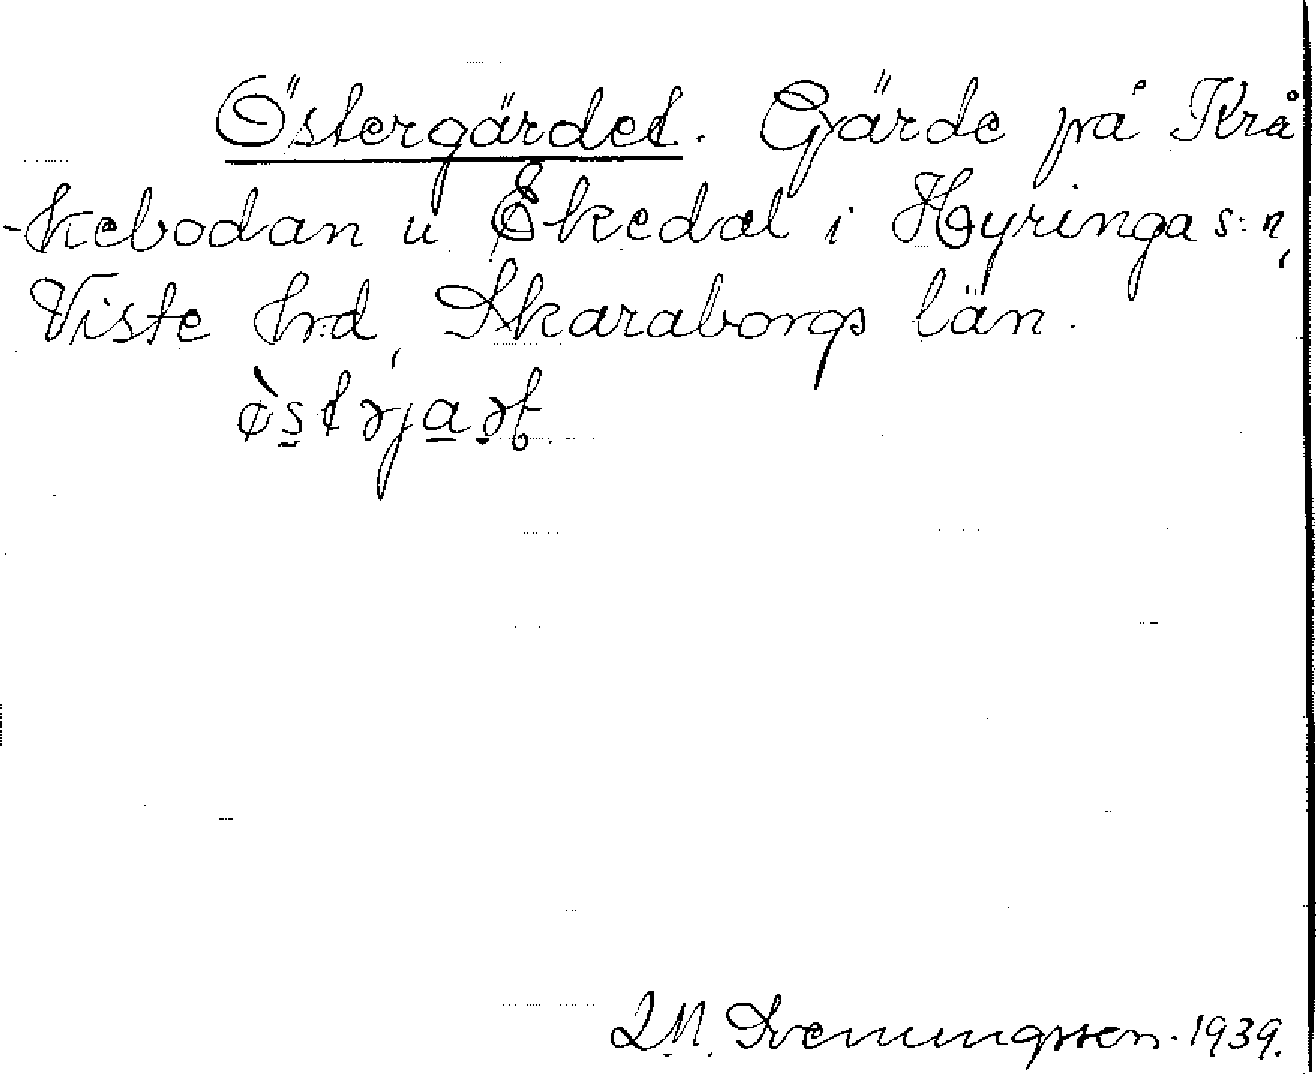 Östergärdet. Gärde på Krå
-kebodan u Ekedal i Hyringa s:n,
Viste hrd, Skaraborgs län.
L.M. Svenungsson. 1939.